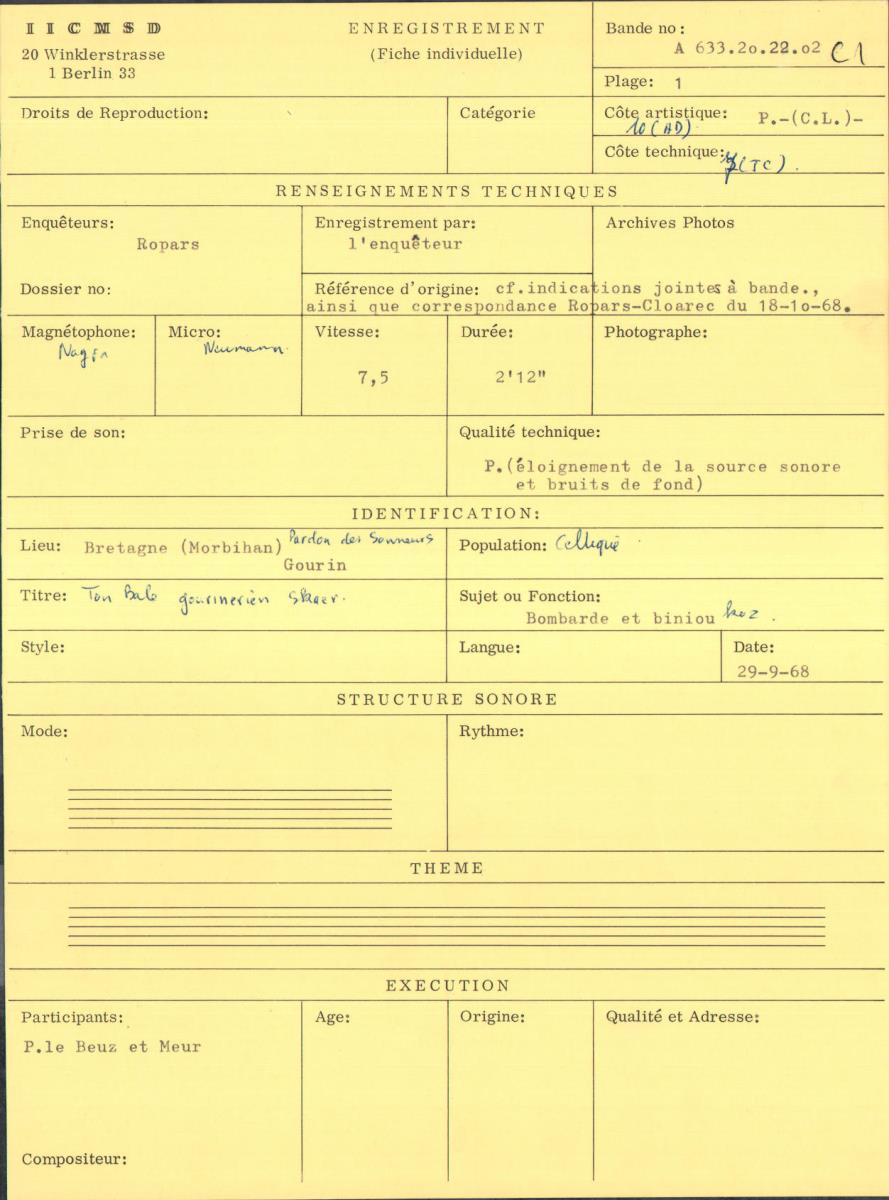 IICMSD
20 Winklerstrasse
1 Berlin 33
ENREGISTREMENT
(Fiche individuelle)
Bande no :
A 633.2o.22.o2 C1
Plage: 1
Droits de Reproduction:
Catégorie
Côte artistique: P.-(C.L.)-
10 (AD)
Côte technique: (TC).
RENSEIGNEMENTS TECHNIQUES
Enquêteurs:
Ropars
Enregistrement par:
l'enquêteur
Archives Photos
Dossier no:
Référence d'origine: cf.indications jointes à bande.,
ainsi que correspondance Ropars-Cloarec du 18-1o-68.
Magnétophone:
Nagra
Micro:
Neumann
Vitesse:
7,5
Durée:
2'12"
Photographe:
Prise de son:
Qualité technique:
P.(éloignement de la source sonore
et bruits de fond)
IDENTIFICATION:
Lieu: Bretagne (Morbihan) Pardon des Sonneurs
Gourin
Population: Celtique
Titre: Ton Bale gourinerien Skaer.
Sujet ou Fonction:
Bombarde et biniou koz.
Style:
Langue:
Date:
29-9-68
STRUCTURE SONORE
Mode:
Rythme:
THEME
EXECUTION
Participants:
P.le Beuz et Meur
Age:
Origine:
Qualité et Adresse:
Compositeur: